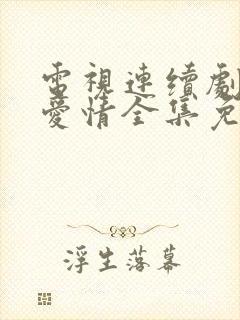 電視連續劇
愛情全集免
浮生落幕